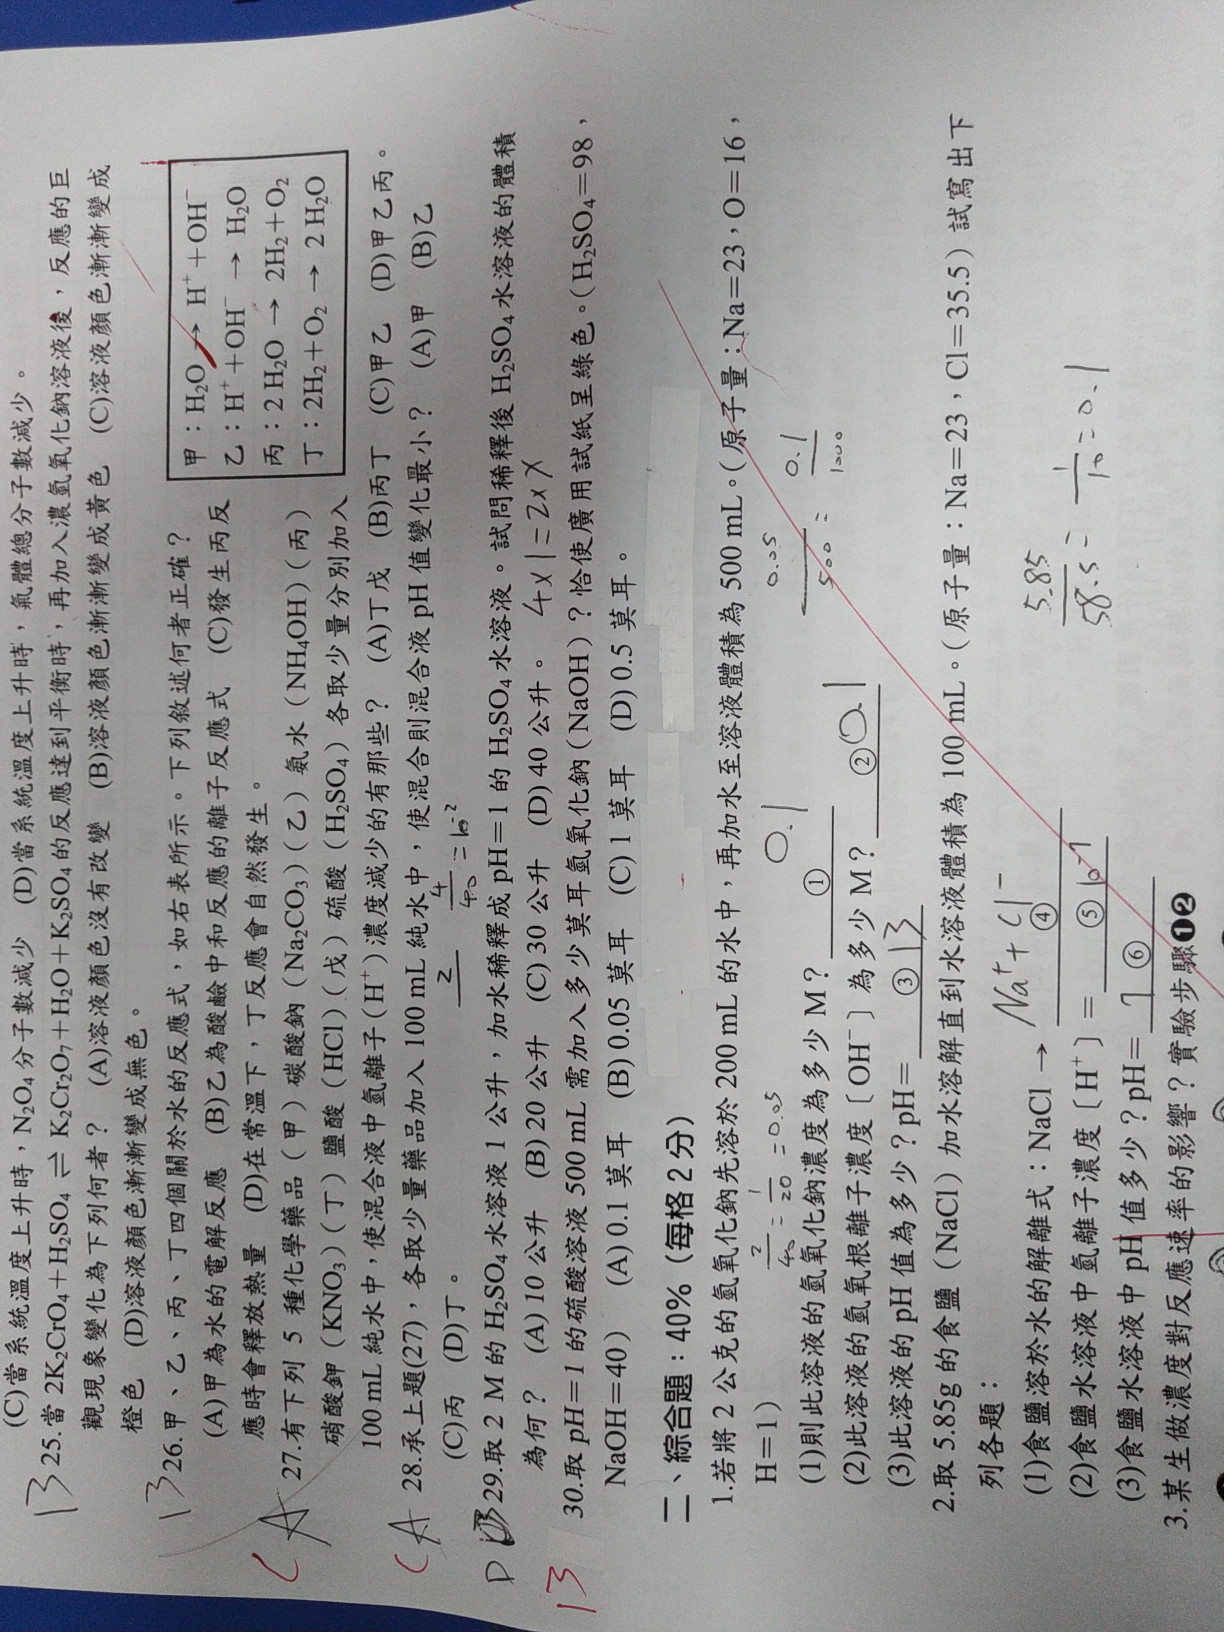 (C)當系統溫度上升時，N₂O₄分子數減少　(D)當系統溫度上升時，氣體總分子數減少。
B 25.當 2K₂CrO₄+H₂SO₄ ⇌ K₂Cr₂O₇+H₂O+K₂SO₄的反應達到平衡時，再加入濃氫氧化鈉溶液後，反應的巨
觀現象變化為下列何者？　(A)溶液顏色沒有改變　(B)溶液顏色漸漸變成黃色　(C)溶液顏色漸漸變成
橙色　(D)溶液顏色漸漸變成無色。
B 26.甲、乙、丙、丁四個關於水的反應式，如右表所示。下列敘述何者正確？
(A)甲為水的電解反應　(B)乙為酸鹼中和反應的離子反應式　(C)發生丙反
應時會釋放熱量　(D)在常溫下，丁反應會自然發生。
甲：H₂O → H⁺+OH⁻
乙：H⁺+OH⁻ → H₂O
丙：2 H₂O → 2H₂+O₂
丁：2H₂+O₂ → 2 H₂O
C A 27.有下列 5 種化學藥品（甲）碳酸鈉（Na₂CO₃）（乙）氨水（NH₄OH）（丙）
硝酸鉀（KNO₃）（丁）鹽酸（HCl）（戊）硫酸（H₂SO₄）各取少量分別加入
100 mL 純水中，使混合液中氫離子（H⁺）濃度減少的有那些？　(A)丁戊　(B)丙丁　(C)甲乙　(D)甲乙丙。
C A 28.承上題(27)，各取少量藥品加入 100 mL 純水中，使混合則混合液 pH 值變化最小？　(A)甲　(B)乙
(C)丙　(D)丁。
2 4/40=10⁻²
D 29.取 2 M 的 H₂SO₄水溶液 1 公升，加水稀釋成 pH=1 的 H₂SO₄水溶液。試問稀釋後 H₂SO₄水溶液的體積
為何？　(A) 10 公升　(B) 20 公升　(C) 30 公升　(D) 40 公升。 4x1=2xX
B 30.取 pH=1 的硫酸溶液 500 mL 需加入多少莫耳氫氧化鈉（NaOH）？恰使廣用試紙呈綠色。（H₂SO₄=98，
NaOH=40）　(A) 0.1 莫耳　(B) 0.05 莫耳　(C) 1 莫耳　(D) 0.5 莫耳。
二、綜合題：40%（每格 2 分）
1.若將 2 公克的氫氧化鈉先溶於 200 mL 的水中，再加水至溶液體積為 500 mL。（原子量：Na=23，O=16，
H=1） 2/40=1/20=0.05
0.05/500= 0.1/1000
(1)則此溶液的氫氧化鈉濃度為多少 M？ ① 0.1
(2)此溶液的氫氧根離子濃度〔OH⁻〕為多少 M？ ② 0.1
(3)此溶液的 pH 值為多少？pH= ③ 13
2.取 5.85g 的食鹽（NaCl）加水溶解直到水溶液體積為 100 mL。（原子量：Na=23，Cl=35.5）試寫出下
列各題：
(1)食鹽溶於水的解離式：NaCl → ④ Na⁺+Cl⁻
5.85/58.5=1/10=0.1
(2)食鹽水溶液中氫離子濃度〔H⁺〕= ⑤ 10⁻⁷
(3)食鹽水溶液中 pH 值多少？pH= ⑥ 7
3.某生做濃度對反應速率的影響？實驗步驟❶❷